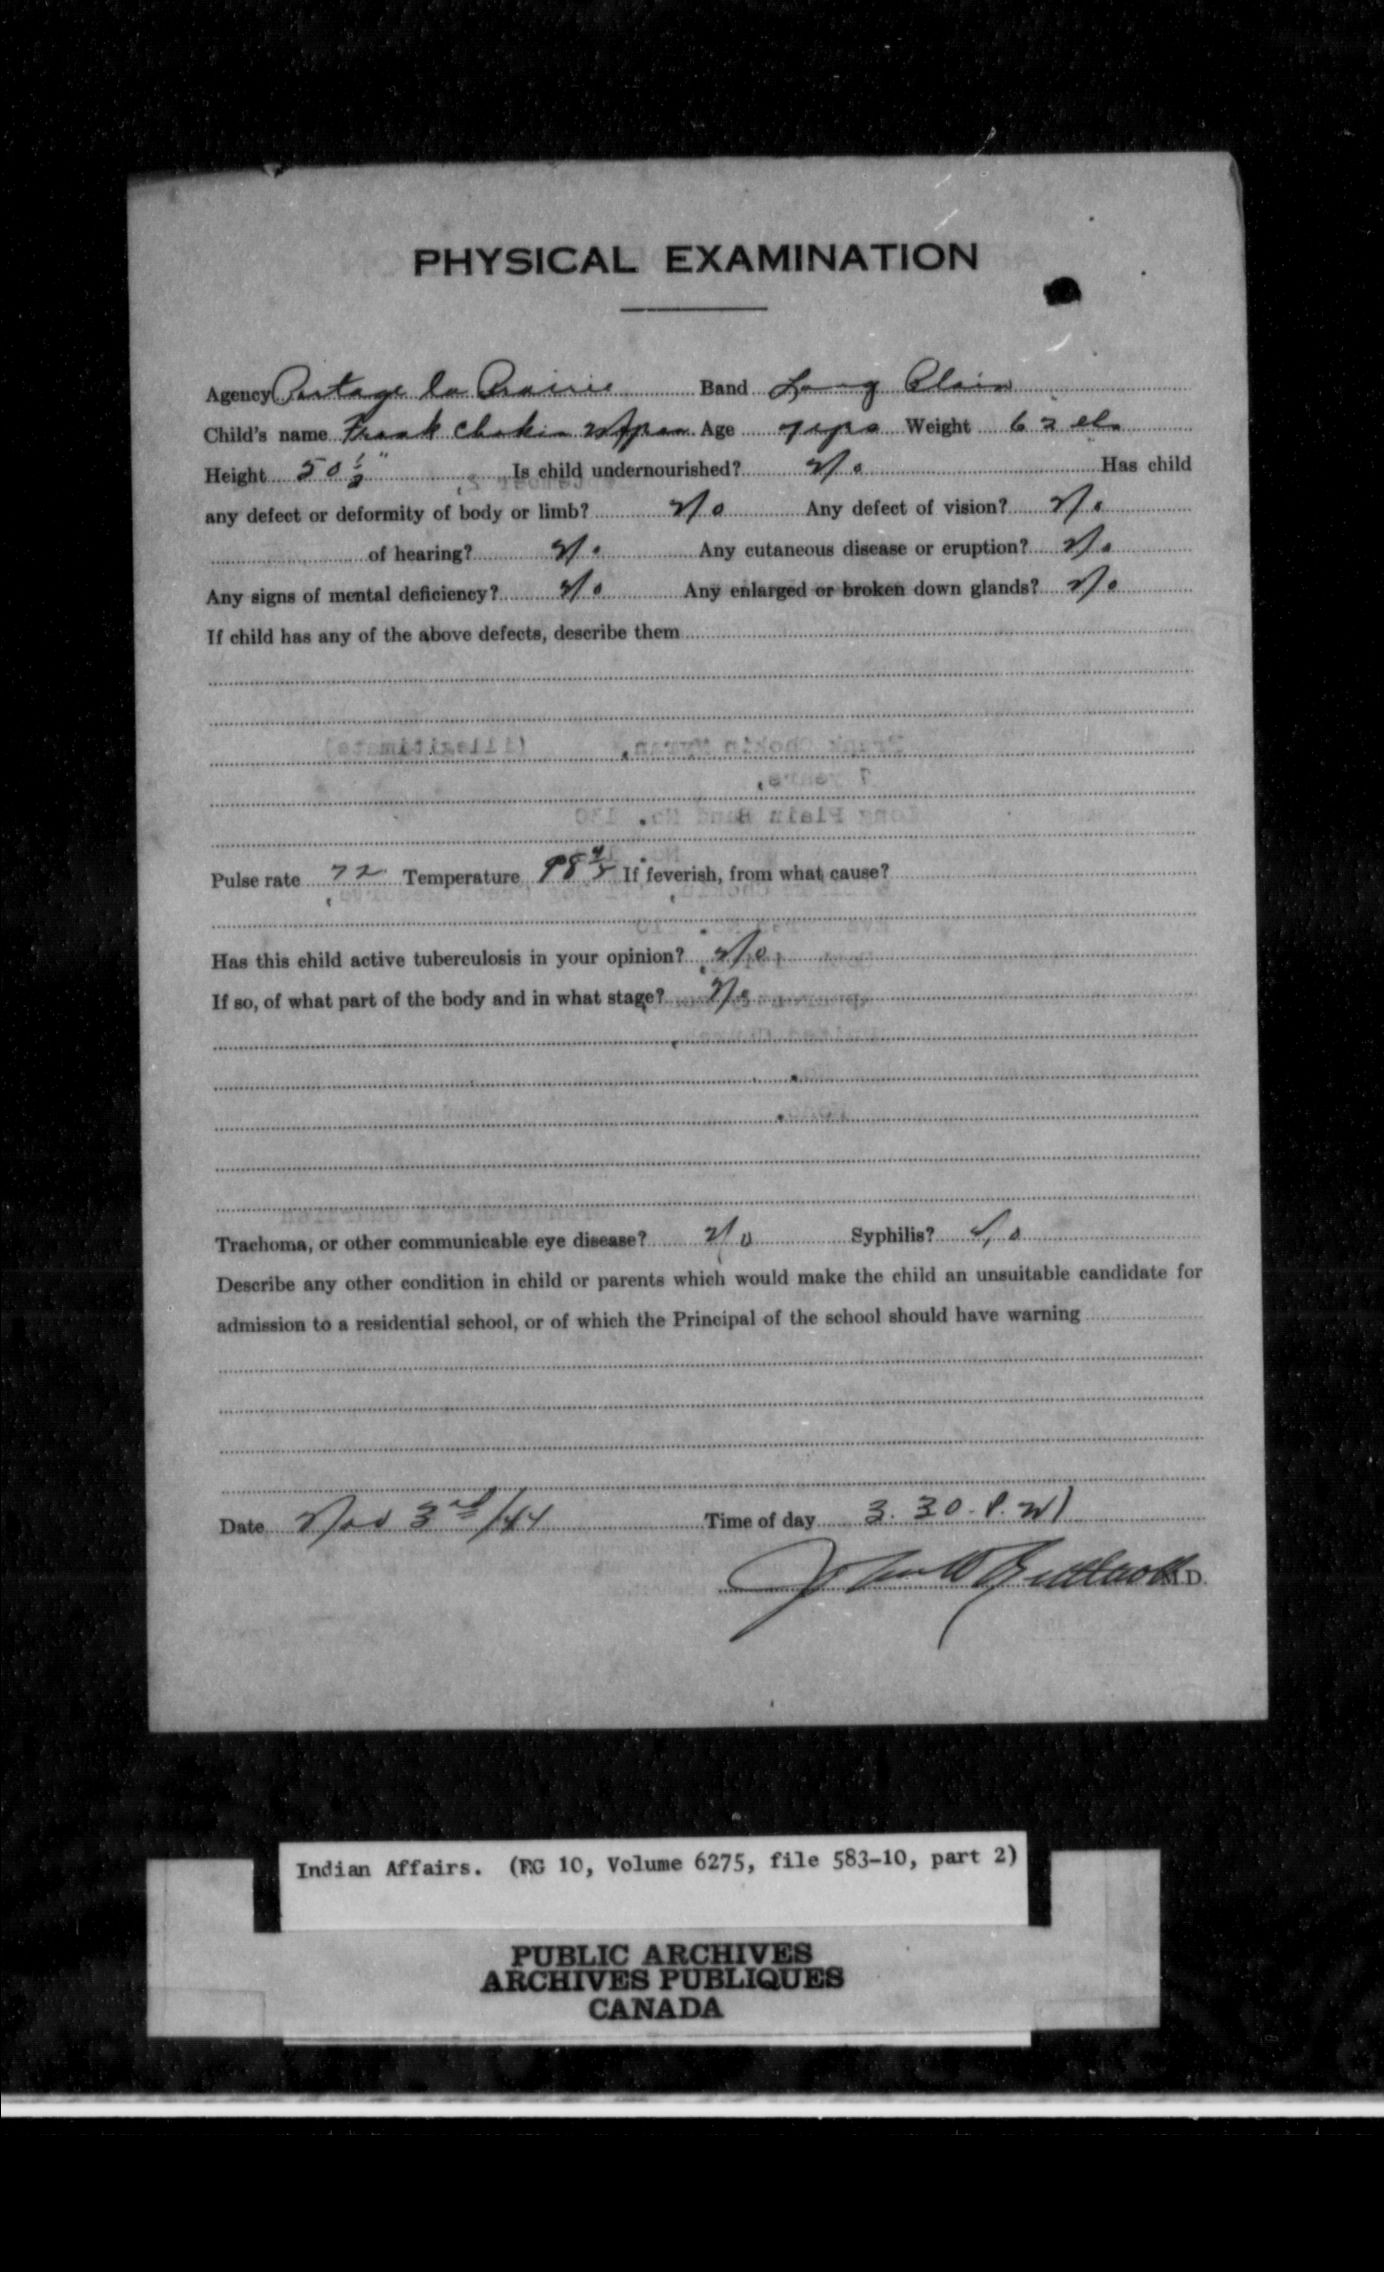 PHYSICAL EXAMINATION
Agency Portage la Prairie Band Long Plain
Child's name Frank Chokin Myran Age 7 yrs Weight 62
Height 50 1/2" Is child undernourished? No Has child
any defect or deformity of body or limb? No Any defect of vision? No
of hearing? No Any cutaneous disease or eruption? No
Any signs of mental deficiency? No Any enlarged or broken down glands? No
If child has any of the above defects, describe them
Pulse rate 72 Temperature If feverish, from what cause?
Has this child active tuberculosis in your opinion? No
If so, of what part of the body and in what stage? No
Trachoma, or other communicable eye disease? No Syphilis? No
Describe any other condition in child or parents which would make the child an unsuitable candidate for
admission to a residential school, or of which the Principal of the school should have warning
Date Nov 3rd/44 Time of day 3.30. P.M
M.D.
Indian Affairs. (RG 10, Volume 6275, file 583-10, part 2)
PUBLIC ARCHIVES
ARCHIVES PUBLIQUES
CANADA